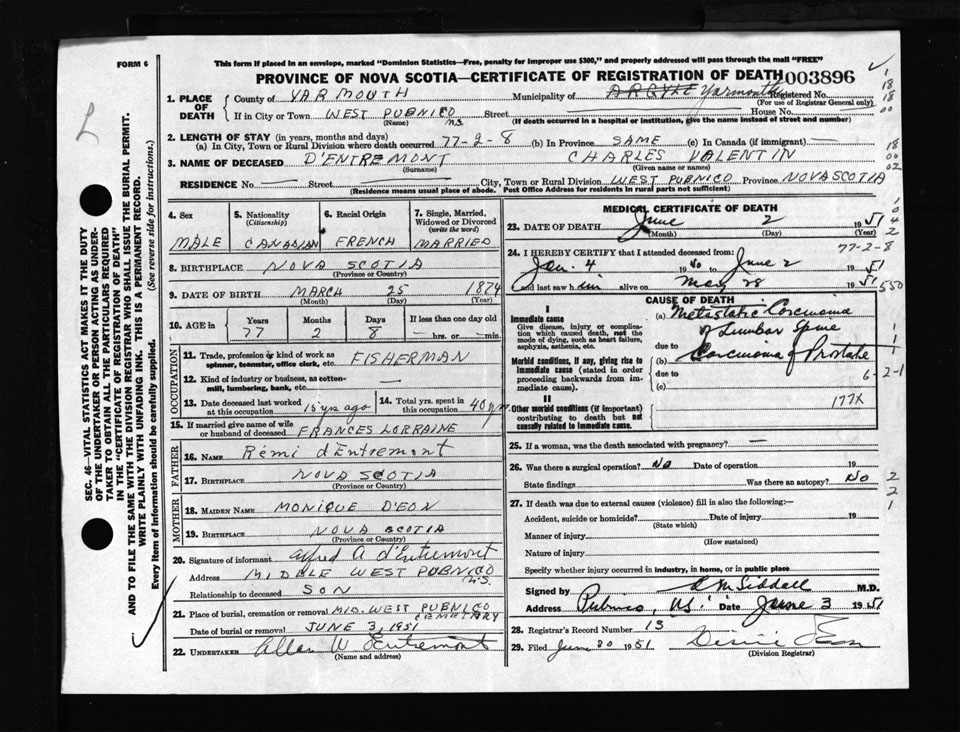 L
FORM 6
This form if placed in an envelope, marked "Dominion Statistics—Free, penalty for improper use $300," and properly addressed will pass through the mail "FREE"
PROVINCE OF NOVA SCOTIA—CERTIFICATE OF REGISTRATION OF DEATH 003896
1. PLACE OF DEATH { County of YARMOUTH Municipality of ARGYLE Yarmouth Registered No.
(For use of Registrar General only)
If in City or Town WEST PUBNICO N.S. Street House No.
(Name) (If death occurred in a hospital or institution, give the name instead of street and number)
2. LENGTH OF STAY (in years, months and days)
(a) In City, Town or Rural Division where death occurred 77-2-8 (b) In Province SAME (c) In Canada (if immigrant) —
3. NAME OF DECEASED D'ENTREMONT CHARLES VALENTIN
(Surname) (Given name or names)
RESIDENCE No. — Street City, Town or Rural Division WEST PUBNICO Province NOVA SCOTIA
(Residence means usual place of abode. Post Office Address for residents in rural parts not sufficient)
SEC 46—VITAL STATISTICS ACT MAKES IT THE DUTY
OF THE UNDERTAKER OR PERSON ACTING AS UNDER-
TAKER TO OBTAIN ALL THE PARTICULARS REQUIRED
IN THE "CERTIFICATE OF REGISTRATION OF DEATH"
AND TO FILE THE SAME WITH THE DIVISION REGISTRAR WHO SHALL ISSUE THE BURIAL PERMIT.
WRITE PLAINLY WITH UNFADING INK. THIS IS A PERMANENT RECORD.
Every item of Information should be carefully supplied. (See reverse side for instructions.)
4. Sex 5. Nationality (Citizenship) 6. Racial Origin 7. Single, Married, Widowed or Divorced (write the word)
MALE CANADIAN FRENCH MARRIED
8. BIRTHPLACE NOVA SCOTIA
(Province or Country)
9. DATE OF BIRTH MARCH 25 1874
(Month) (Day) (Year)
10. AGE in { Years Months Days If less than one day old
77 2 8 hrs. or min.
OCCUPATION
11. Trade, profession or kind of work as spinner, teamster, office clerk, etc. FISHERMAN
12. Kind of industry or business, as cotton-mill, lumbering, bank, etc. —
13. Date deceased last worked at this occupation 15 yrs ago 14. Total yrs. spent in this occupation 40 yrs
15. If married give name of wife or husband of deceased FRANCES LORRAINE
FATHER
16. NAME Rémi d'Entremont
17. BIRTHPLACE NOVA SCOTIA
(Province or Country)
MOTHER
18. MAIDEN NAME MONIQUE D'EON
19. BIRTHPLACE NOVA SCOTIA
(Province or Country)
20. Signature of informant Alfred A d'Entremont
Address MIDDLE WEST PUBNICO N.S.
Relationship to deceased SON
21. Place of burial, cremation or removal MID. WEST PUBNICO CEMETARY
Date of burial or removal JUNE 3, 1951
22. UNDERTAKER Allan W d'Entremont
(Name and address)
MEDICAL CERTIFICATE OF DEATH
23. DATE OF DEATH June 2 1951
(Month) (Day) (Year)
77-2-8
24. I HEREBY CERTIFY that I attended deceased from
Jan. 4 1940 to June 2 1951
and last saw him alive on May 28 1951
550
CAUSE OF DEATH
I
Immediate cause
Give disease, injury or complication which caused death, not the mode of dying, such as heart failure, asphyxia, asthenia, etc.
(a) Metastatic Carcinoma of Lumbar Spine
due to
Morbid conditions, if any, giving rise to immediate cause (stated in order proceeding backwards from immediate cause).
(b) Carcinoma of Prostate
due to 6-2-1
(c)
II
Other morbid conditions (if important) contributing to death but not causally related to immediate cause.
177X
25. If a woman, was the death associated with pregnancy? —
26. Was there a surgical operation? No Date of operation 19
State findings Was there an autopsy? No
27. If death was due to external causes (violence) fill in also the following:—
Accident, suicide or homicide? Date of injury 19
(State which)
Manner of injury
(How sustained)
Nature of injury
Specify whether injury occurred in industry, in home, or in public place
Signed by M Siddall M.D.
Address Pubnico, N.S. Date June 3 1951
28. Registrar's Record Number 13
29. Filed June 20 1951
(Division Registrar)